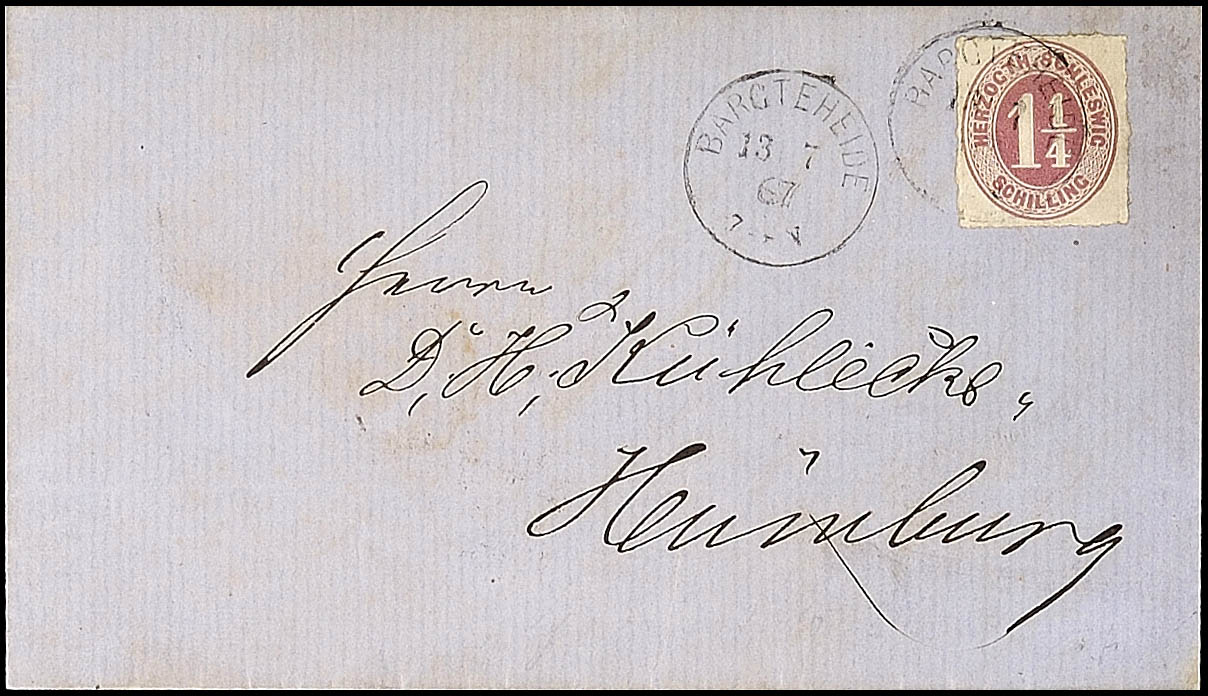 BARGTEHEIDE
13 7
67
BARGTEHEIDE
HERZOGTH. SCHLESWIG
1 1/4
SCHILLING
Herrn
D. H. Kühlecke,
Hamburg